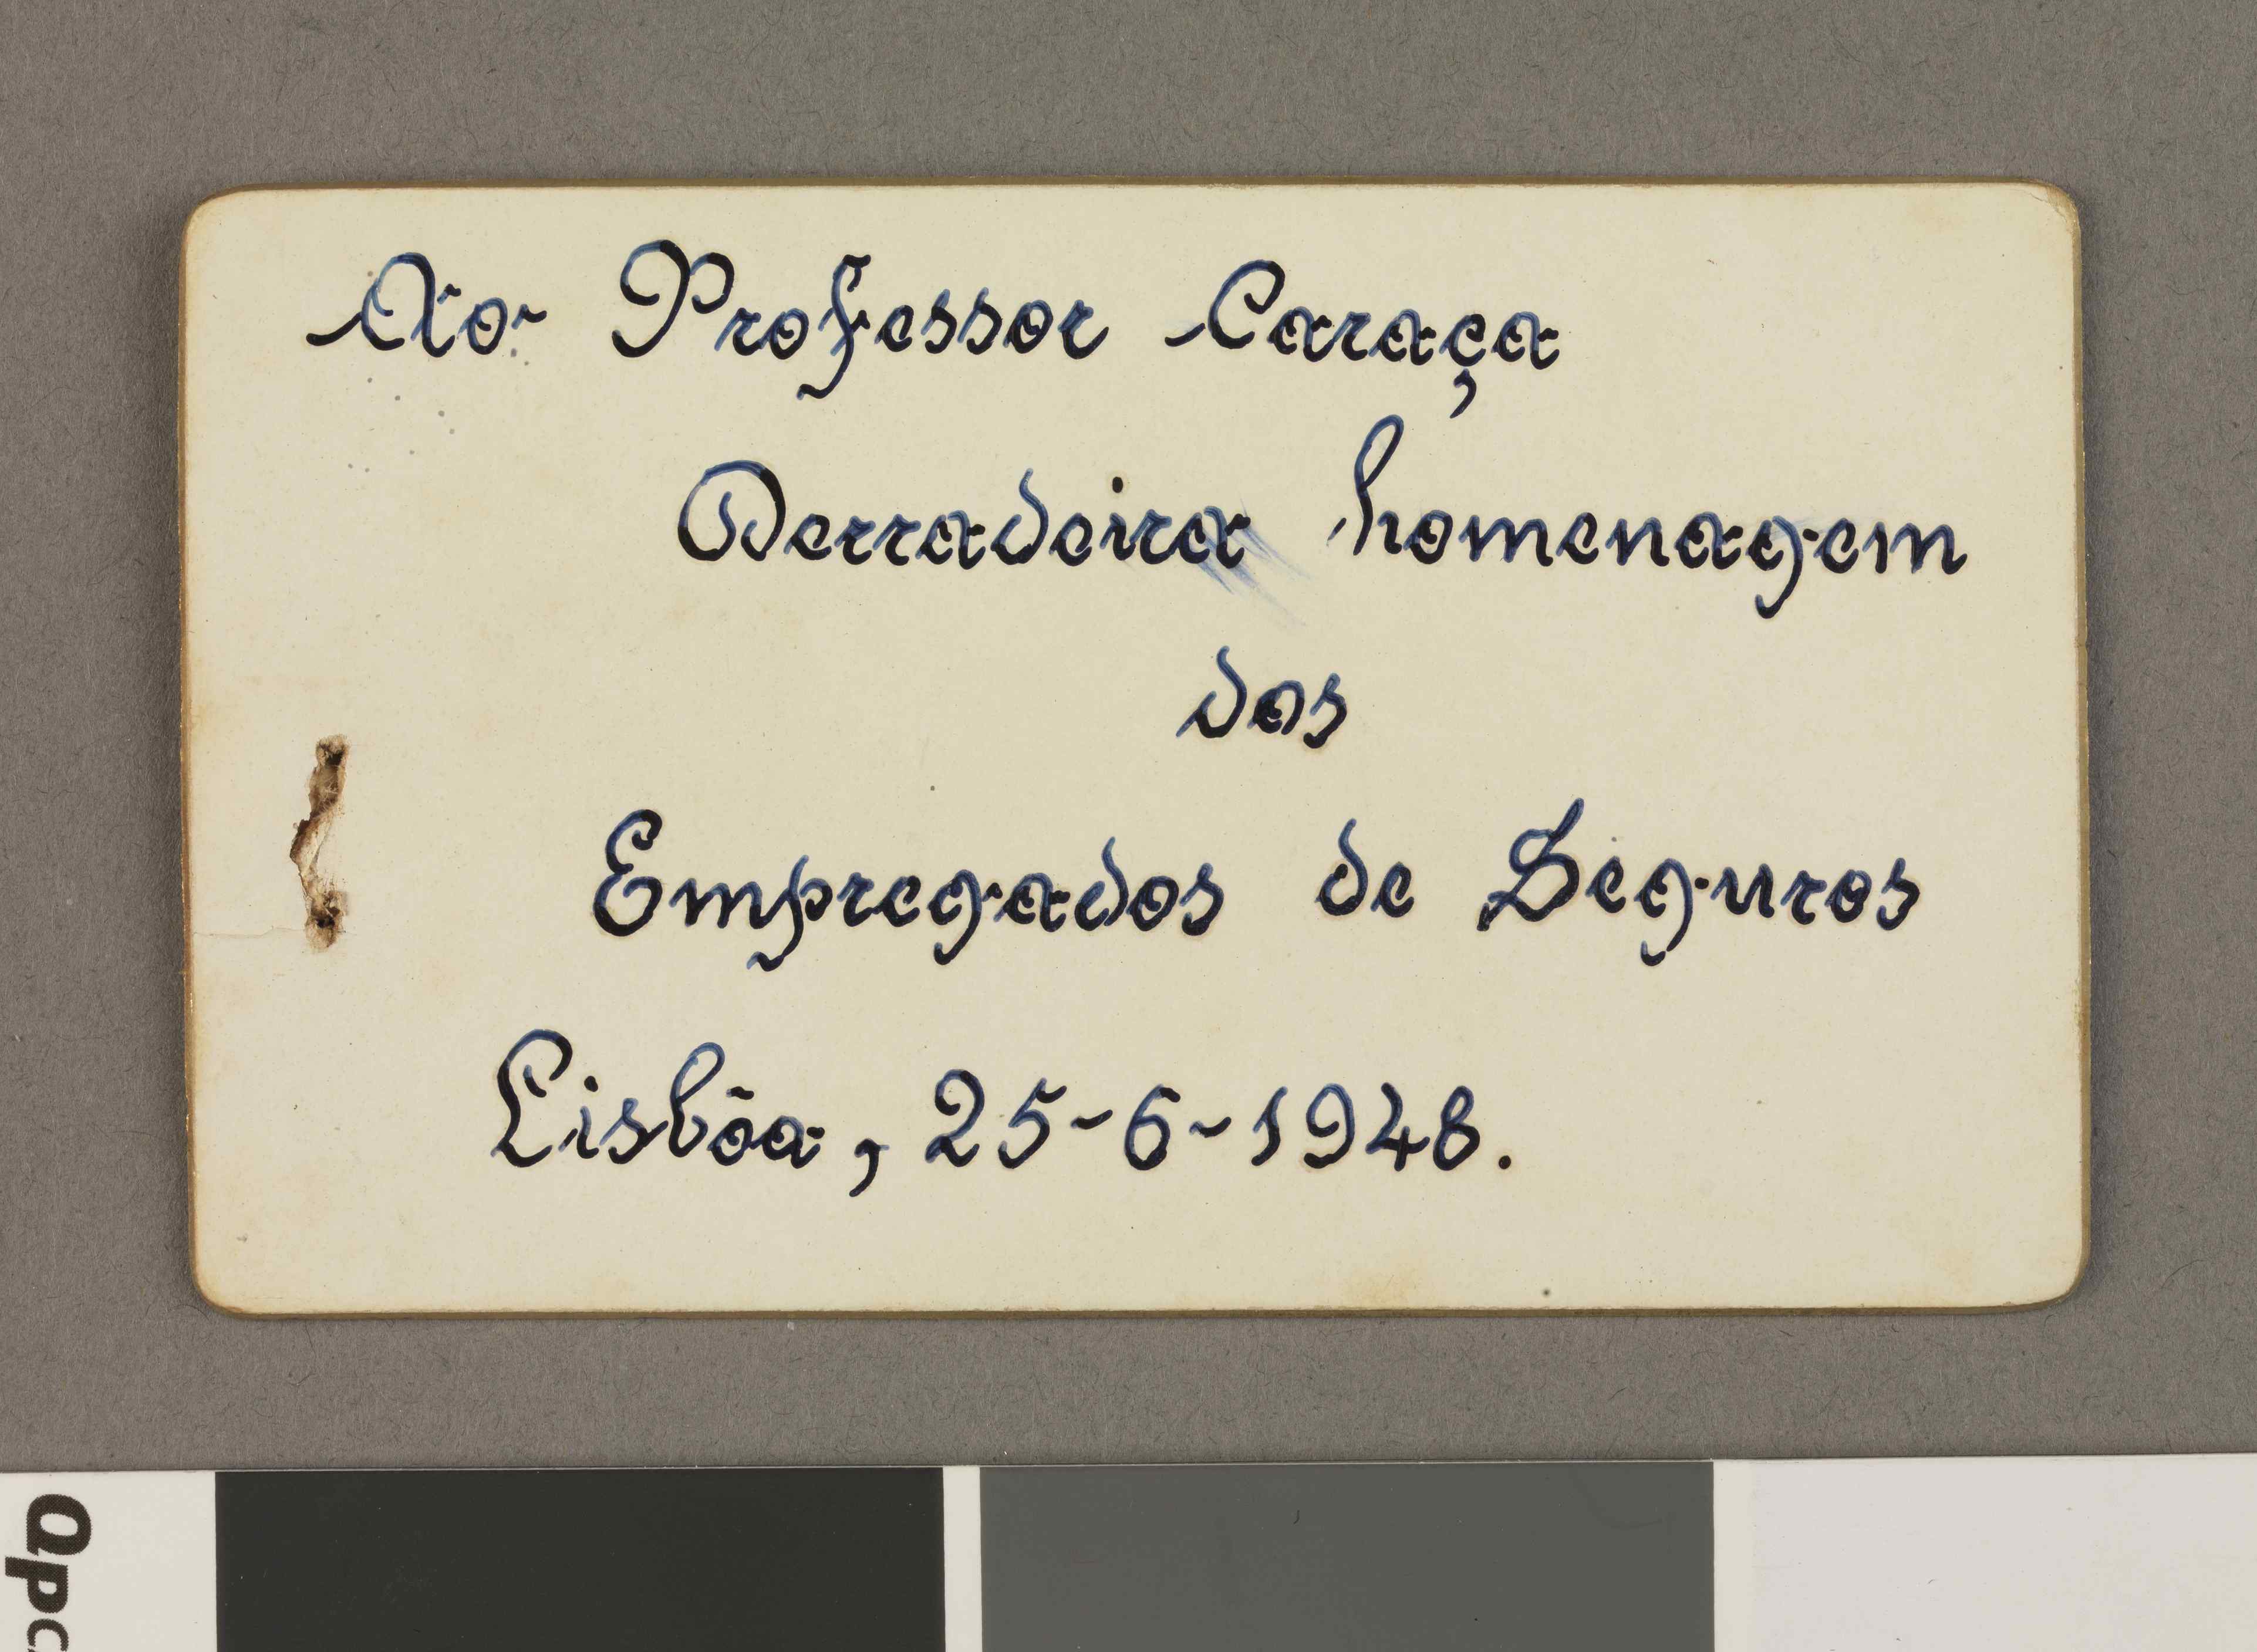 Ao Professor Caraça
Derradeira homenagem
dos
Empregados de Seguros
Lisbôa, 25-6-1948.